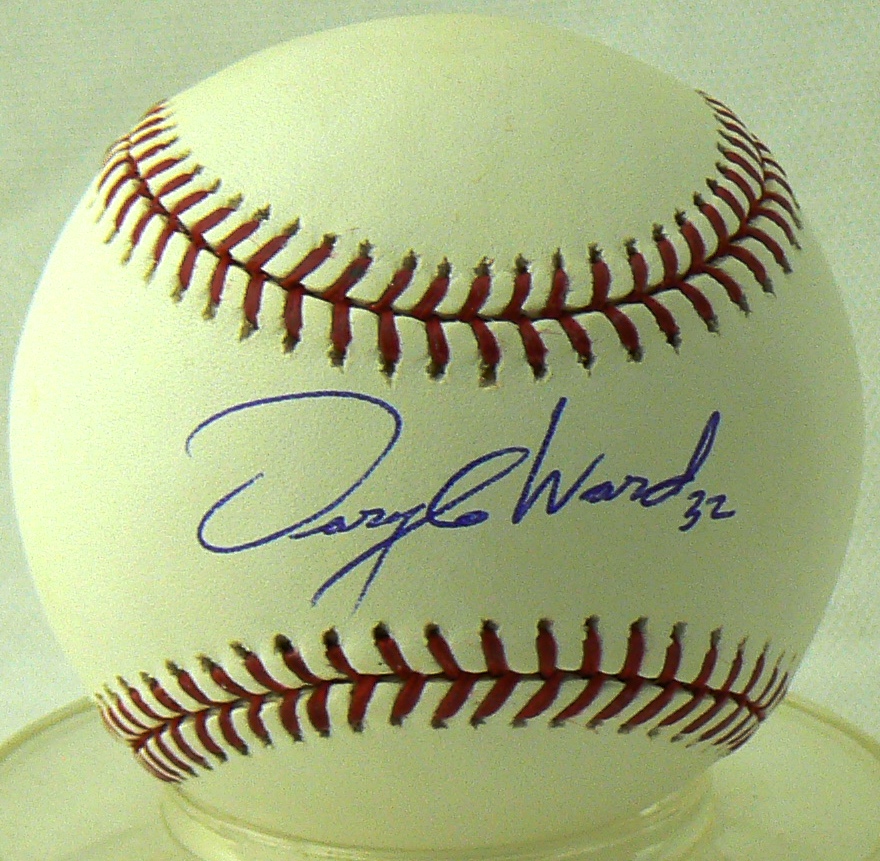 Daryle Ward 32